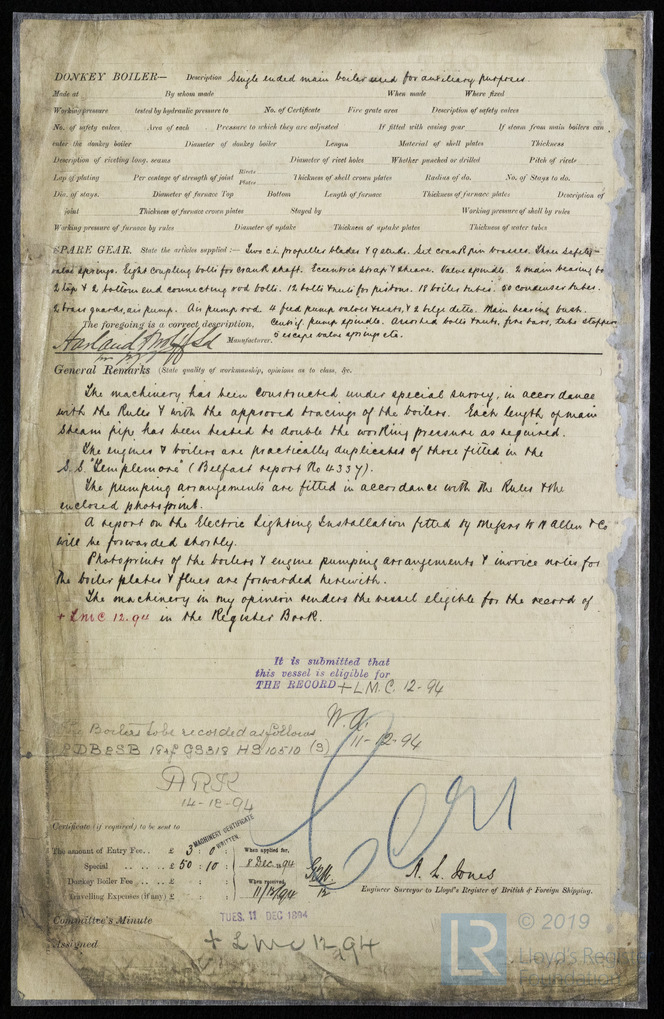 DONKEY BOILER— Description Single ended main boiler used for auxiliary purposes.
Made at By whom made When made Where fixed
Working pressure tested by hydraulic pressure to No. of Certificate Fire grate area Description of safety valves
No. of safety valves Area of each Pressure to which they are adjusted If fitted with easing gear If steam from main boilers can
enter the donkey boiler Diameter of donkey boiler Length Material of shell plates Thickness
Description of riveting long. seams Diameter of rivet holes Whether punched or drilled Pitch of rivets
Lap of plating Per centage of strength of joint Rivets Plates Thickness of shell crown plates Radius of do. No. of Stays to do.
Dia. of stays. Diameter of furnace Top Bottom Length of furnace Thickness of furnace plates Description of
joint Thickness of furnace crown plates Stayed by Working pressure of shell by rules
Working pressure of furnace by rules Diameter of uptake Thickness of uptake plates Thickness of water tubes
SPARE GEAR. State the articles supplied :— Two c.i. propeller blades & 9 studs. Set crank pin brasses. Three safety-
valve springs. Eight coupling bolts for crank shaft. Eccentric strap & sheave. Valve spindle. 2 main bearing bo
2 top & 2 bottom end connecting rod bolts. 12 bolts & nuts for pistons. 18 boiler tubes. 50 condenser tubes.
2 brass guards, air pump. Air pump rod. 4 feed pump valves & seats, & 2 bilge ditto. Main bearing bush.
The foregoing is a correct description, centrif. pump spindle. Assorted bolts & nuts, fire bars, tube stoppers
Harland & Wolff Ld Manufacturer. 5 escape valve springs etc.
General Remarks (State quality of workmanship, opinions as to class, &c.
The machinery has been constructed under special survey, in accordance
with the Rules & with the approved tracings of the boilers. Each length of main
steam pipe has been tested to double the working pressure as required.
The engines & boilers are practically duplicates of those fitted in the
S.S. "Templemore" (Belfast report No 4337).
The pumping arrangements are fitted in accordance with the Rules & the
enclosed photoprint.
A report on the Electric Lighting Installation fitted by Messrs W H Allen & Co
will be forwarded shortly.
Photoprints of the boilers & engine pumping arrangements & invoice notes for
the boiler plates & flues are forwarded herewith.
The machinery in my opinion renders the vessel eligible for the record of
+ LMC 12.94 in the Register Book.
It is submitted that
this vessel is eligible for
THE RECORD + L.M.C. 12-94
11-12-94
Boilers to be recorded as follows
ARK
14-12-94
Certificate (if required) to be sent to
MACHINERY CERTIFICATE WRITTEN.
The amount of Entry Fee.. £ 3 : 0 : When applied for,
Special .. .. .. £ 50 : 10 : 8 Dec. 1894
Donkey Boiler Fee .. .. £ : : When received,
Travelling Expenses (if any) £ : : 11/12/94
A. L. Jones
Engineer Surveyor to Lloyd's Register of British & Foreign Shipping.
Committee's Minute TUES. 11 DEC 1894
Assigned + LMC 12.94
© 2019
LR Lloyd's Register
Foundation